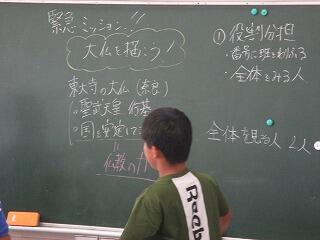 緊急ミッション!!
大仏を描こう!
東大寺の大仏(奈良)
聖武天皇 行基
国を安定して
仏教の力
①役割分担
・番号に班をわける
・全体をみる人
全体を見る人 2人
Reeb